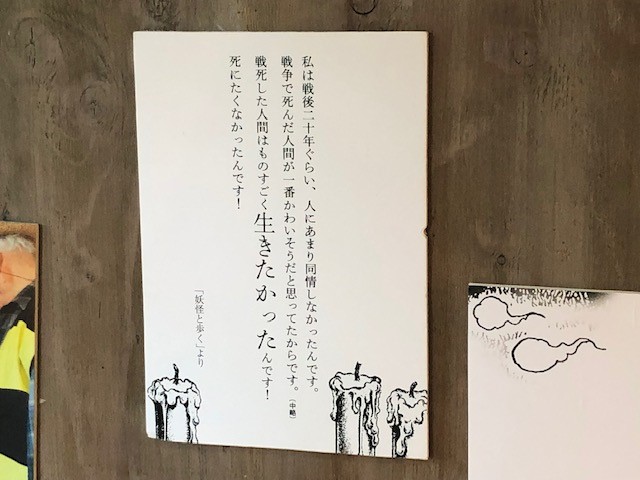 私は戦後二十年ぐらい、人にあまり同情しなかったんです。
戦争で死んだ人間が一番かわいそうだと思ってたからです。〔中略〕
戦死した人間はものすごく生きたかったんです!
死にたくなかったんです!
「妖怪と歩く」より